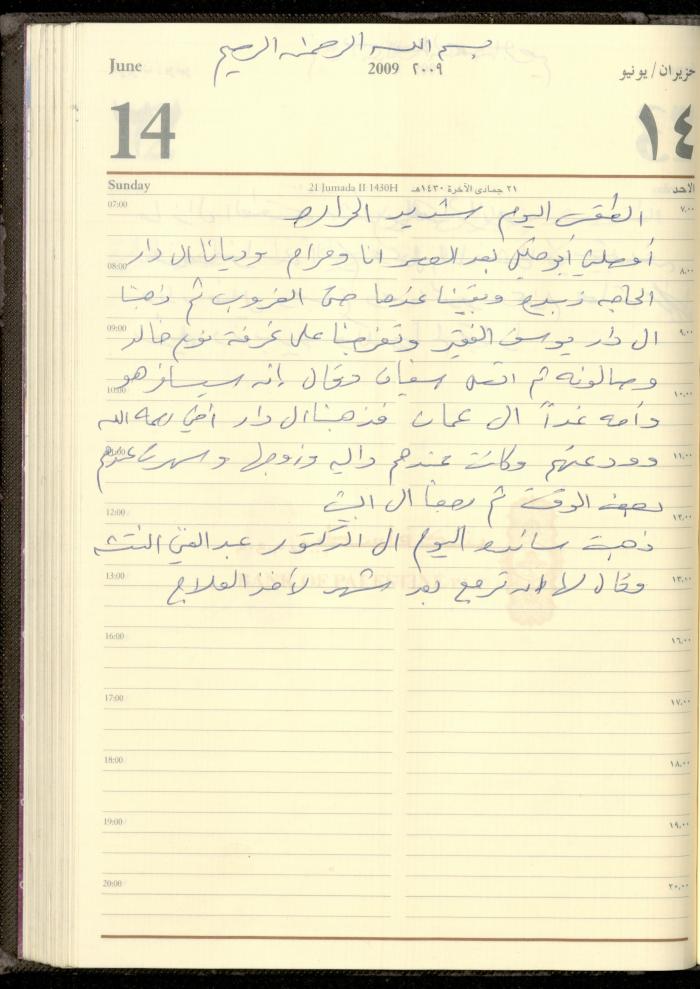 بسم الله الرحمن الرحيم
June 2009 ٢٠٠٩ حزيران / يونيو
14 ١٤
Sunday 21 Jumada II 1430H ٢١ جمادى الآخرة ١٤٣٠هـ الاحد
07:00 الطقس اليوم شديد الحرارة ٧.٠٠
أوصلني أبو خليل بعد العصر انا ومرام وديانا ال دار
08:00 ٨.٠٠
الحاجه زبيدة وبقينا عندها حتى الغروب ثم ذهبنا
09:00 ال دار يوسف الفقير وتفرجنا على غرفة نوم خالد ٩.٠٠
وصالونه ثم اتصل سفيان وقال إنه سيسافر هو
10:00 ١٠.٠٠
وأمه غداً ال عمان فذهبنا ال دار أخي رحمه الله
11:00 وودعتهم وكانت عندهم داليه وزوجها وسهرنا عندهم ١١.٠٠
بعض الوقت ثم رجعنا ال البيت
12:00 ١٢.٠٠
ذهبت ساندره اليوم ال الدكتور عبد الغني النتشه
13:00 وقال لها ان ترجع بعد شهر لأخذ العلاج ١٣.٠٠
BANK OF PALESTINE
16:00 ١٦.٠٠
17:00 ١٧.٠٠
18:00 ١٨.٠٠
19:00 ١٩.٠٠
20:00 ٢٠.٠٠